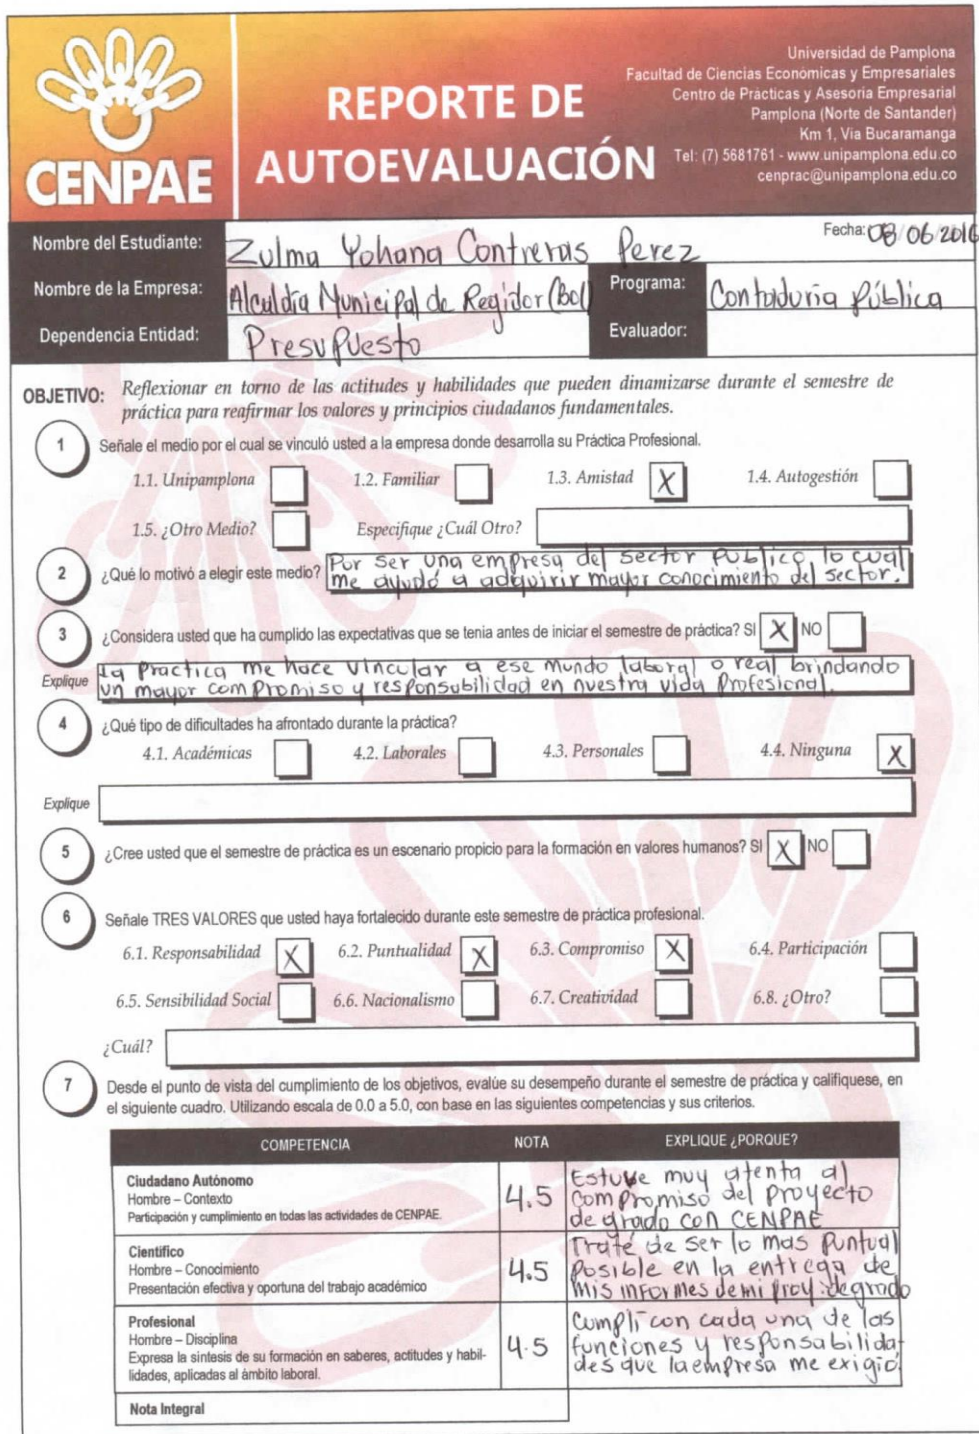 CENPAE
REPORTE DE
AUTOEVALUACIÓN
Universidad de Pamplona
Facultad de Ciencias Económicas y Empresariales
Centro de Prácticas y Asesoría Empresarial
Pamplona (Norte de Santander)
Km 1, Via Bucaramanga
Tel: (7) 5681761 - www.unipamplona.edu.co
cenprac@unipamplona.edu.co
Nombre del Estudiante: Zulma Yohana Contreras Perez Fecha: 08/06/2016
Nombre de la Empresa: Alcaldía Municipal de Regidor (Bol) Programa: Contaduría Pública
Dependencia Entidad: Presupuesto Evaluador:
OBJETIVO: Reflexionar en torno de las actitudes y habilidades que pueden dinamizarse durante el semestre de
práctica para reafirmar los valores y principios ciudadanos fundamentales.
1 Señale el medio por el cual se vinculó usted a la empresa donde desarrolla su Práctica Profesional.
1.1. Unipamplona 1.2. Familiar 1.3. Amistad X 1.4. Autogestión
1.5. ¿Otro Medio? Especifique ¿Cuál Otro?
2 ¿Qué lo motivó a elegir este medio? Por ser una empresa del sector publico lo cual
me ayudó a adquirir mayor conocimiento del sector.
3 ¿Considera usted que ha cumplido las expectativas que se tenia antes de iniciar el semestre de práctica? SI X NO
Explique La practica me hace vincular a ese mundo laboral o real brindando
un mayor compromiso y responsabilidad en nuestra vida profesional.
4 ¿Qué tipo de dificultades ha afrontado durante la práctica?
4.1. Académicas 4.2. Laborales 4.3. Personales 4.4. Ninguna X
Explique
5 ¿Cree usted que el semestre de práctica es un escenario propicio para la formación en valores humanos? SI X NO
6 Señale TRES VALORES que usted haya fortalecido durante este semestre de práctica profesional.
6.1. Responsabilidad X 6.2. Puntualidad X 6.3. Compromiso X 6.4. Participación
6.5. Sensibilidad Social 6.6. Nacionalismo 6.7. Creatividad 6.8. ¿Otro?
¿Cuál?
7 Desde el punto de vista del cumplimiento de los objetivos, evalúe su desempeño durante el semestre de práctica y califiquese, en
el siguiente cuadro. Utilizando escala de 0.0 a 5.0, con base en las siguientes competencias y sus criterios.
COMPETENCIA NOTA EXPLIQUE ¿PORQUE?
Ciudadano Autónomo
Hombre – Contexto
Participación y cumplimiento en todas las actividades de CENPAE.
4.5
Estuve muy atenta al
compromiso del proyecto
de grado con CENPAE
Científico
Hombre – Conocimiento
Presentación efectiva y oportuna del trabajo académico
4.5
Traté de ser lo mas puntual
posible en la entrega de
mis informes de mi proy. de grado
Profesional
Hombre – Disciplina
Expresa la sintesis de su formación en saberes, actitudes y habi-
lidades, aplicadas al ámbito laboral.
4.5
Cumplí con cada una de las
funciones y responsabilida-
des que la empresa me exigió.
Nota Integral